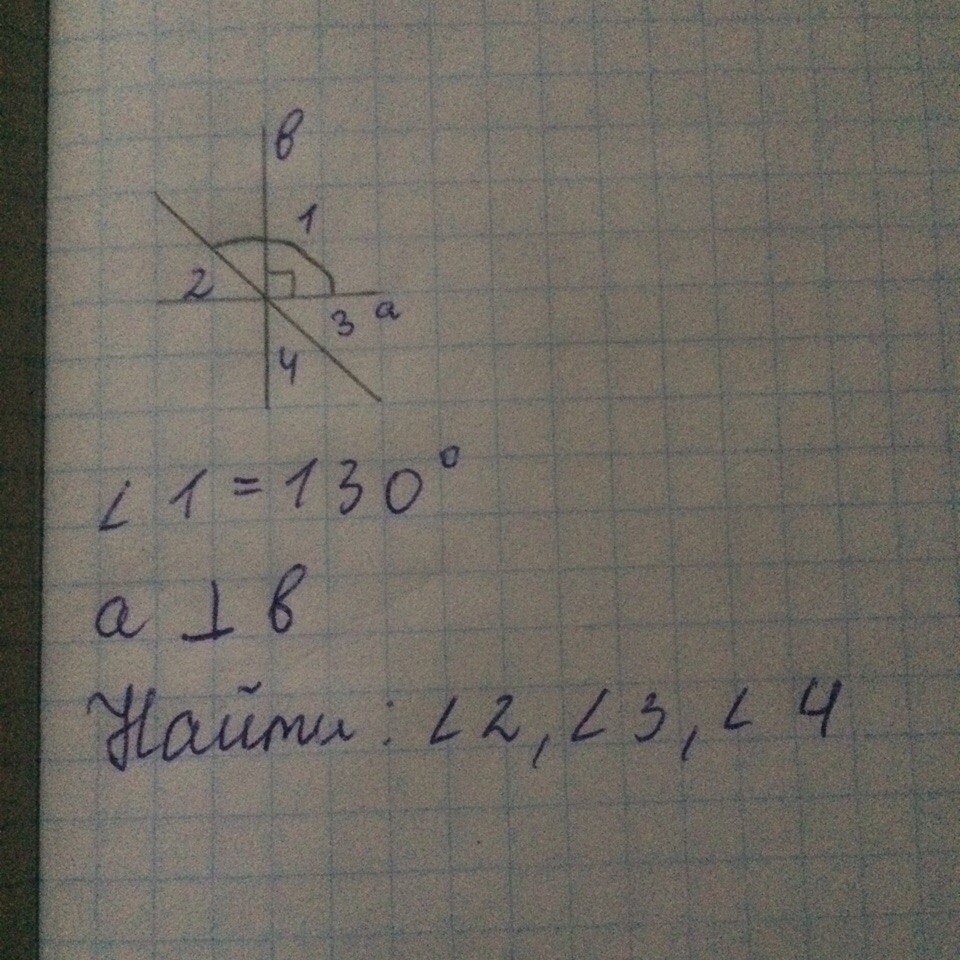 в
1
2
3 а
4
∠ 1 = 130°
а ⊥ в
Найти: ∠ 2, ∠ 3, ∠ 4